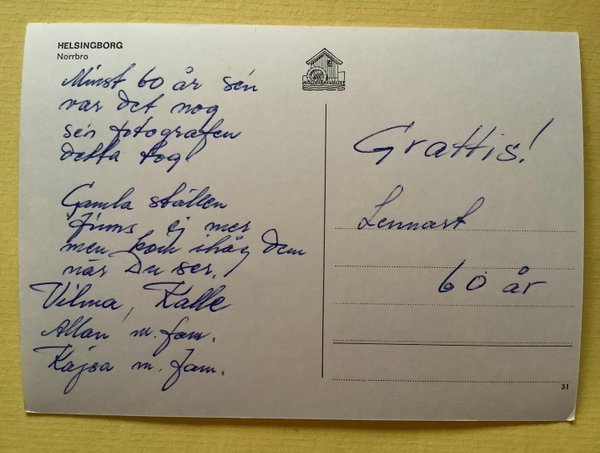 HELSINGBORG
Norrbro
Minst 60 år sén
var det nog
sén fotografen
detta tog
Gamla ställen
finns ej mer
men kom ihåg dem
när Du ser.
Vilma, Kalle
Allan m. fam.
Kajsa m. fam.
Grattis!
Lennart
60 år
31